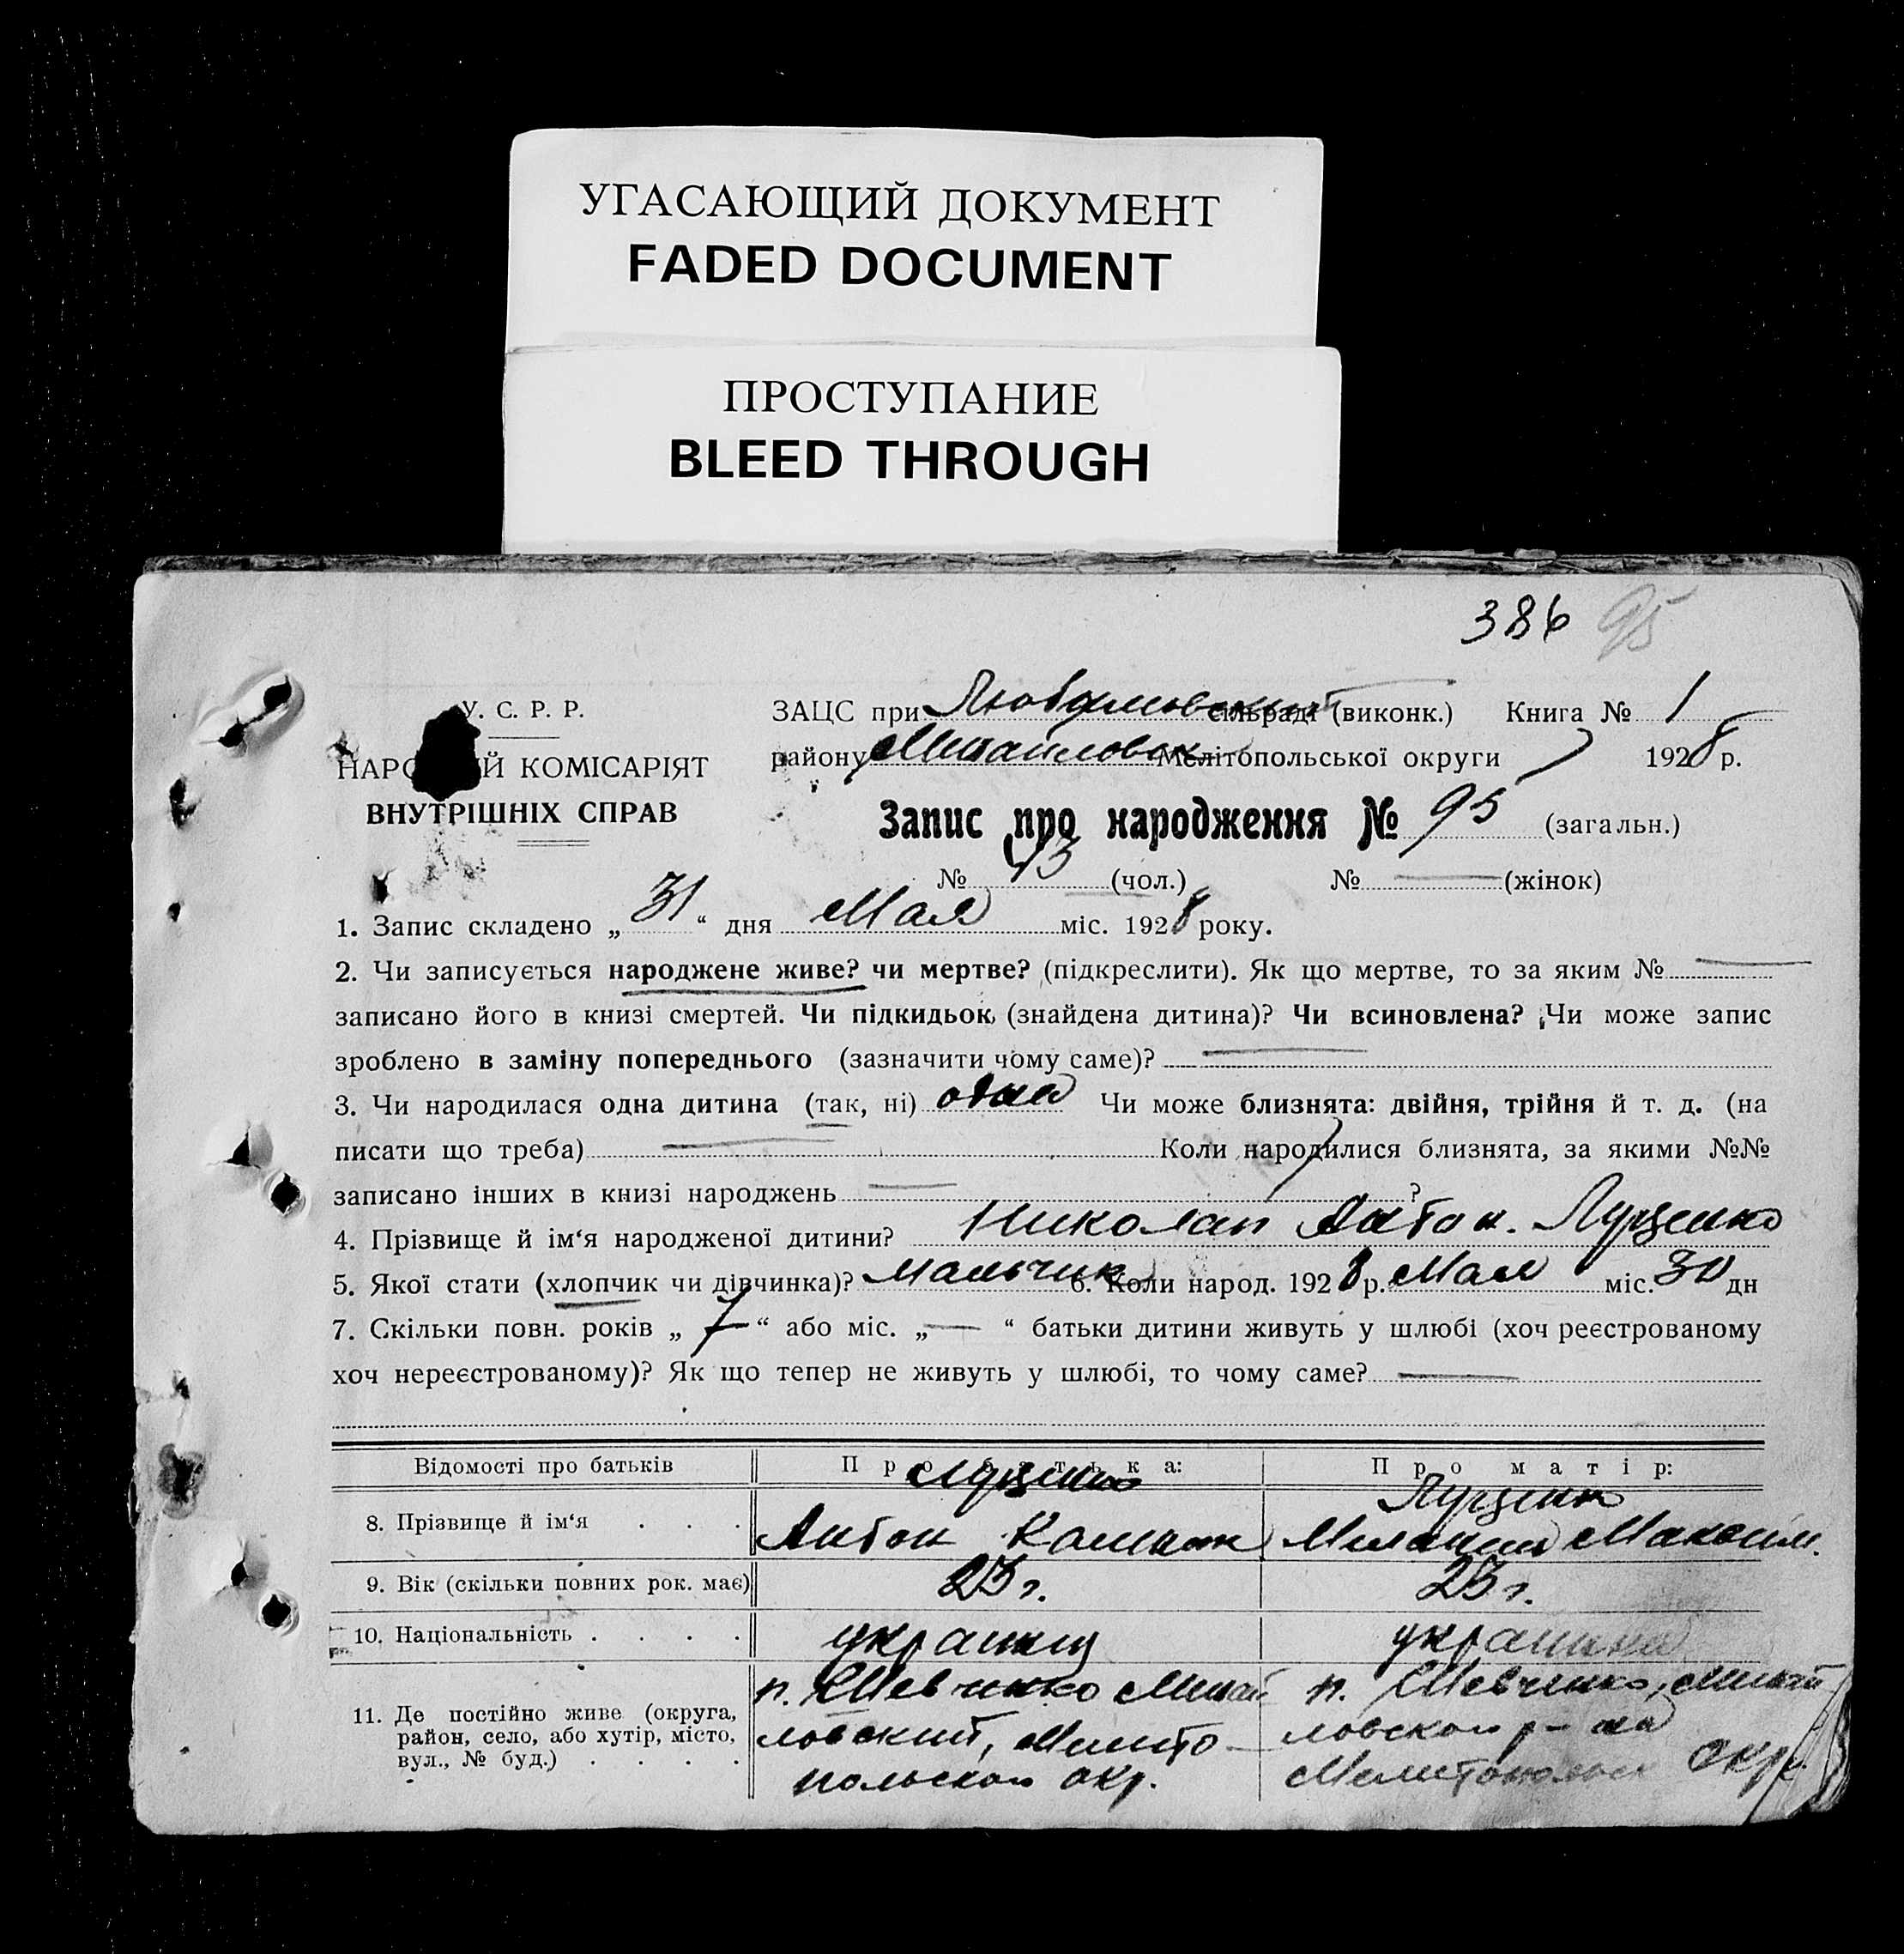 УГАСАЮЩИЙ ДОКУМЕНТ
FADED DOCUMENT
ПРОСТУПАНИЕ
BLEED THROUGH
386 95
У. С. Р. Р.
НАРО ИЙ КОМІСАРІЯТ
ВНУТРІШНІХ СПРАВ
ЗАЦС при сільраді (виконк.) Книга № 1
району Михайловск Мелітопольської округи 1928 р.
Запис про народження № 95 (загальн.)
№ 43 (чол.) № — (жінок)
1. Запис складено „ 31 “ дня Мая міс. 1928 року.
2. Чи записується народжене живе? чи мертве? (підкреслити). Як що мертве, то за яким № —
записано його в книзі смертей. Чи підкидьок (знайдена дитина)? Чи всиновлена? Чи може запис
зроблено в заміну попереднього (зазначити чому саме)? —
3. Чи народилася одна дитина (так, ні) одна Чи може близнята: двійня, трійня й т. д. (на
писати що треба) — Коли народилися близнята, за якими №№
записано інших в книзі народжень — ?
4. Прізвище й ім‘я народженої дитини? Николай Антон. Луценко
5. Якої стати (хлопчик чи дівчинка)? Мальчик 6. Коли народ. 1928 р. Мая міс. 30 дн
7. Скільки повн. років „ 7 “ або міс. „ — “ батьки дитини живуть у шлюбі (хоч реєстрованому
хоч нереєстрованому)? Як що тепер не живуть у шлюбі, то чому саме? —
Відомості про батьків Про батька: Про матір:
Луценко Луценко
8. Прізвище й ім‘я . . . Антон Мелания Максим.
9. Вік (скільки повних рок. має) 23 г. 23 г.
10. Національність . . . . украинец украинка
11. Де постійно живе (округа, район, село, або хутір, місто, вул., № буд.) . . . .
п. Шевченко Михай п. Шевченко, Михай
ловский, Мелито- ловского р-на
польского окр. Мелитопольск окр.